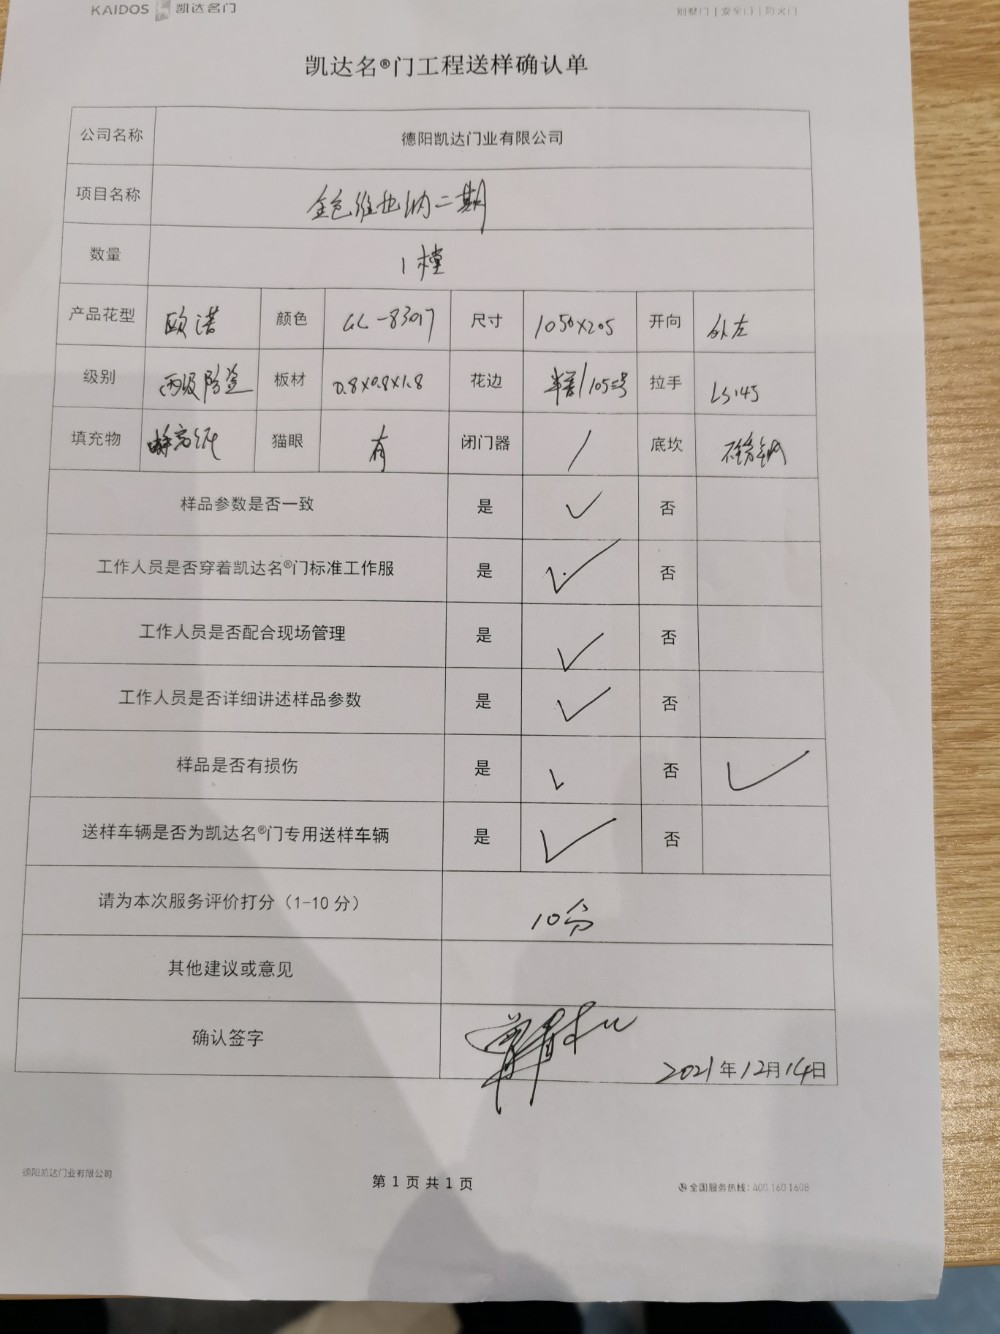 KAIDOS 凯达名门 别墅门 | 安全门 | 防火门
凯达名®门工程送样确认单
公司名称 德阳凯达门业有限公司
项目名称 金色维也纳二期
数量 1樘
产品花型 欧诺 颜色 GL-83017 尺寸 1050×205 开向 外左
级别 丙级防盗 板材 0.8×0.8×1.8 花边 拉手 LS145
填充物 蜂窝纸 猫眼 有 闭门器 / 底坎 不锈钢
样品参数是否一致 是 ✓ 否
工作人员是否穿着凯达名®门标准工作服 是 ✓ 否
工作人员是否配合现场管理 是 ✓ 否
工作人员是否详细讲述样品参数 是 ✓ 否
样品是否有损伤 是 ✓ 否 ✓
送样车辆是否为凯达名®门专用送样车辆 是 ✓ 否
请为本次服务评价打分（1-10 分） 10分
其他建议或意见
确认签字
2021年12月14日
德阳凯达门业有限公司 第 1 页 共 1 页 全国服务热线：400 160 1608